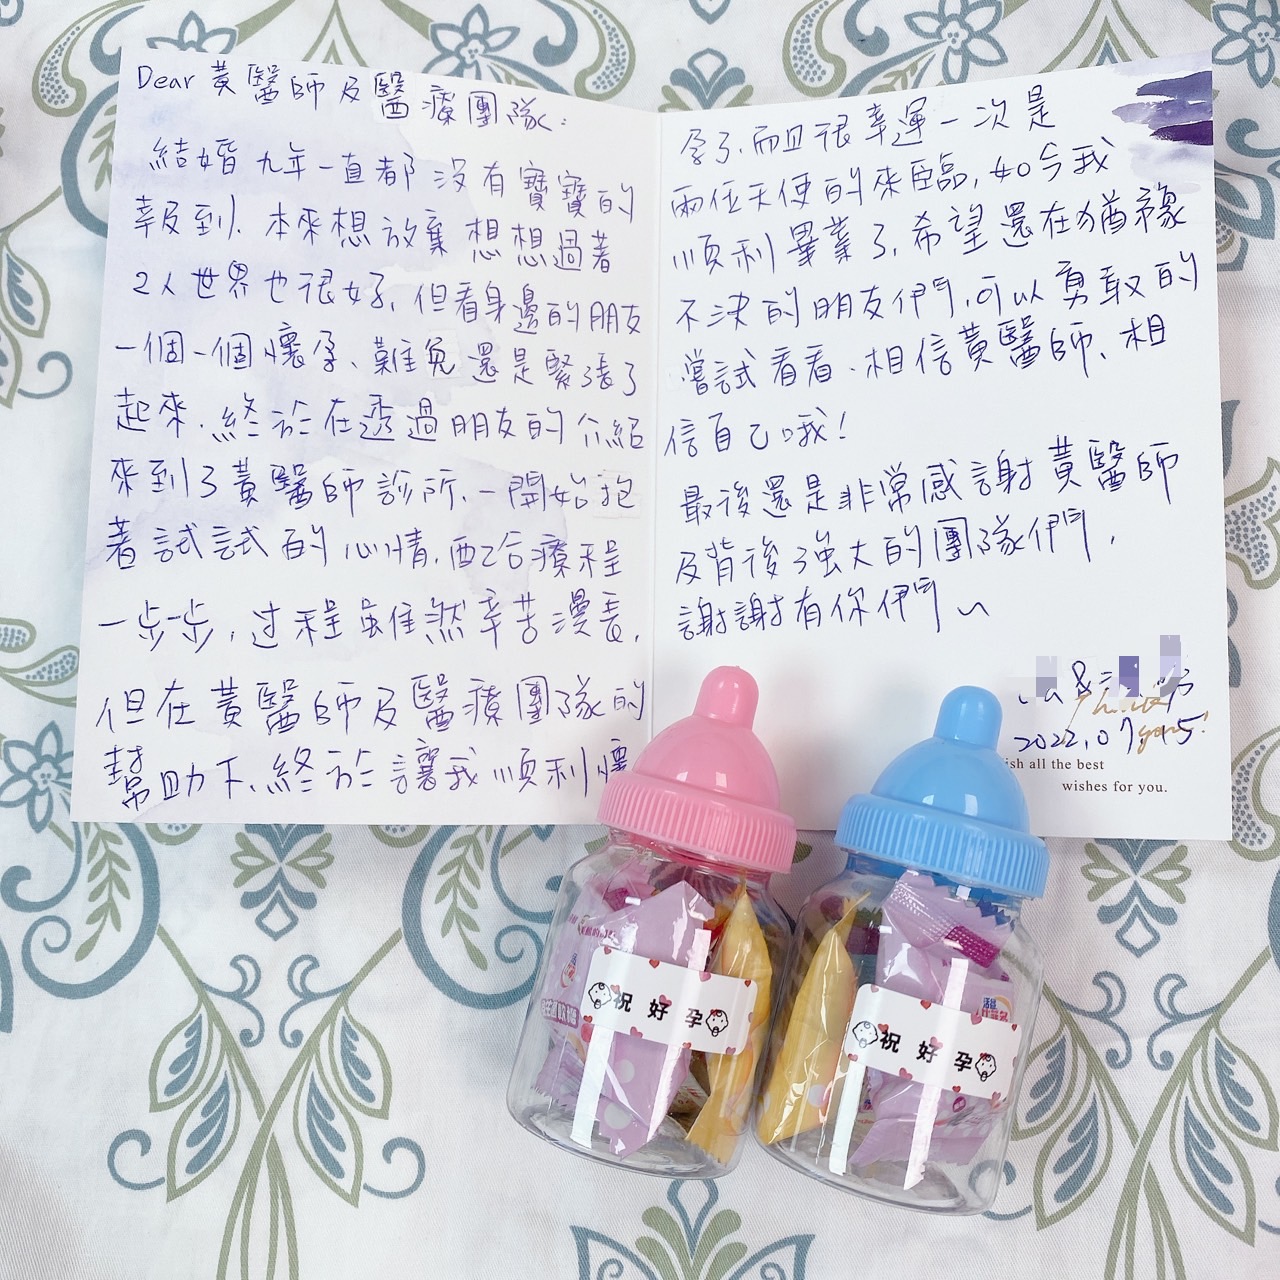 Dear 黃醫師及醫療團隊:
結婚九年一直都沒有寶寶的
報到、本來想放棄想想過著
2人世界也很好, 但看身邊的朋友
一個一個懷孕、難免還是緊張了
起來、終於在透過朋友的介紹
來到了黃醫師診所、一開始抱
著試試的心情, 配合療程
一步一步, 过程雖然辛苦漫長,
但在黃醫師及醫療團隊的
幫助下、終於讓我順利懷
孕了, 而且很幸運一次是
兩位天使的來臨, 如今我
順利畢業了, 希望還在猶豫
不決的朋友們, 可以勇敢的
嘗試看看、相信黃醫師、相
信自己哦!
最後還是非常感謝黃醫師
及背後強大的團隊們,
謝謝有你們~
&
Thank
2022.07.15
you!
ish all the best
wishes for you.
祝好孕
祝好孕